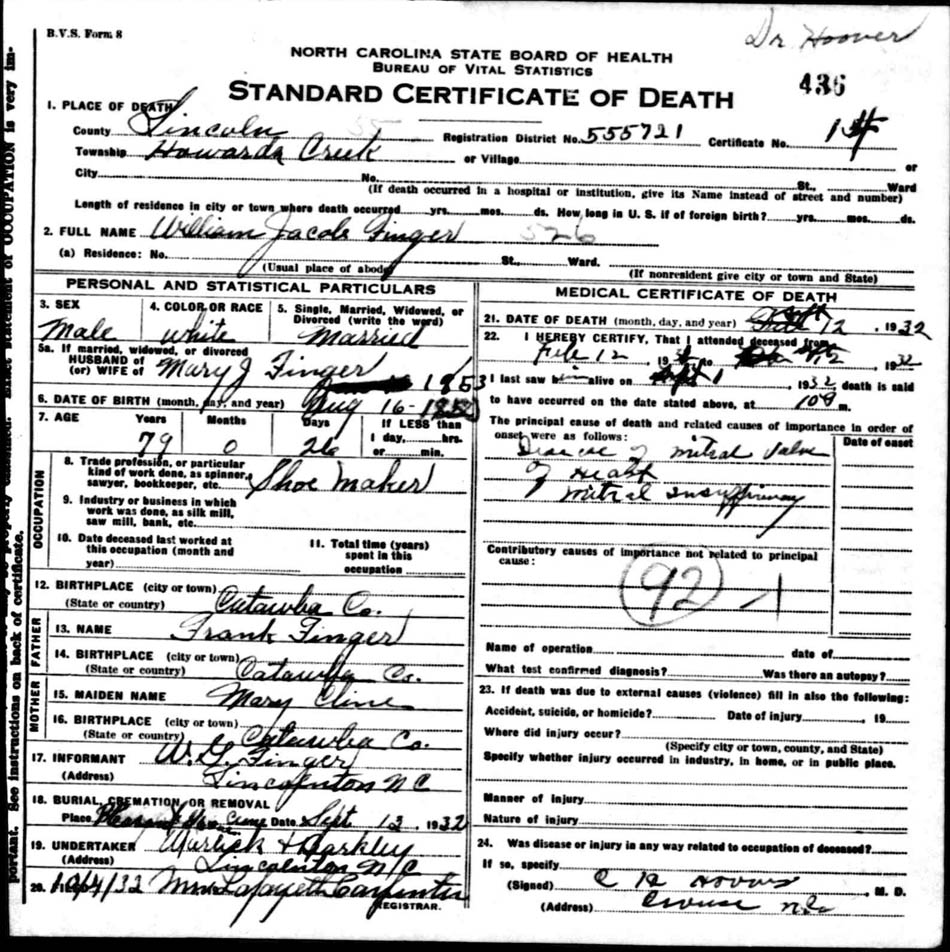 B.V.S. Form 8
Dr Hoover
NORTH CAROLINA STATE BOARD OF HEALTH
BUREAU OF VITAL STATISTICS
436
STANDARD CERTIFICATE OF DEATH
1. PLACE OF DEATH
County Lincoln 55 Registration District No. 555721 Certificate No. 14
Township Howards Creek or Village or
City No. St., Ward
(If death occurred in a hospital or institution, give its Name instead of street and number)
Length of residence in city or town where death occurred yrs. mos. ds. How long in U. S. if of foreign birth? yrs. mos. ds.
2. FULL NAME William Jacob Finger 526
(a) Residence: No. St., Ward.
(Usual place of abode) (If nonresident give city or town and State)
PERSONAL AND STATISTICAL PARTICULARS
3. SEX 4. COLOR OR RACE 5. Single, Married, Widowed, or Divorced (write the word)
Male White Married
5a. If married, widowed, or divorced
HUSBAND of
(or) WIFE of Mary J Finger
1853
6. DATE OF BIRTH (month, day, and year) Aug 16-1852
7. AGE Years Months Days If LESS than
1 day, hrs.
79 0 26 or min.
OCCUPATION
8. Trade profession, or particular
kind of work done, as spinner,
sawyer, bookkeeper, etc. Shoe Maker
9. Industry or business in which
work was done, as silk mill,
saw mill, bank, etc.
10. Date deceased last worked at
this occupation (month and
year)
11. Total time (years)
spent in this
occupation
12. BIRTHPLACE (city or town)
(State or country) Catawba Co.
FATHER
13. NAME Frank Finger
14. BIRTHPLACE (city or town)
(State or country) Catawba Co.
MOTHER
15. MAIDEN NAME Mary Cline
16. BIRTHPLACE (city or town)
(State or country) Catawba Co.
17. INFORMANT W. G. Finger
(Address) Lincolnton N C
18. BURIAL, CREMATION, OR REMOVAL
Place Date Sept 13 1932
19. UNDERTAKER Warlick &
(Address) Lincolnton N C
20. 10/4/32 Mrs Lafayette Carpenter
REGISTRAR.
MEDICAL CERTIFICATE OF DEATH
21. DATE OF DEATH (month, day, and year) 12, 1932
22. I HEREBY CERTIFY, That I attended deceased from
12 19 to 12 1932
I last saw him alive on Sept 1, 1932 death is said
to have occurred on the date stated above, at m.
The principal cause of death and related causes of importance in order of
onset were as follows: Date of onset
Disease of mitral valve
of Heart
mitral insufficiency
Contributory causes of importance not related to principal
cause:
92 - 1
Name of operation date of
What test confirmed diagnosis? Was there an autopsy?
23. If death was due to external causes (violence) fill in also the following:
Accident, suicide, or homicide? Date of injury , 19
Where did injury occur?
(Specify city or town, county, and State)
Specify whether injury occurred in industry, in home, or in public place.
Manner of injury
Nature of injury
24. Was disease or injury in any way related to occupation of deceased?
If so, specify
(Signed) Hoover M. D.
(Address) Crouse N.C.
OCCUPATION is very im-
portant. See instructions on back of certificate.